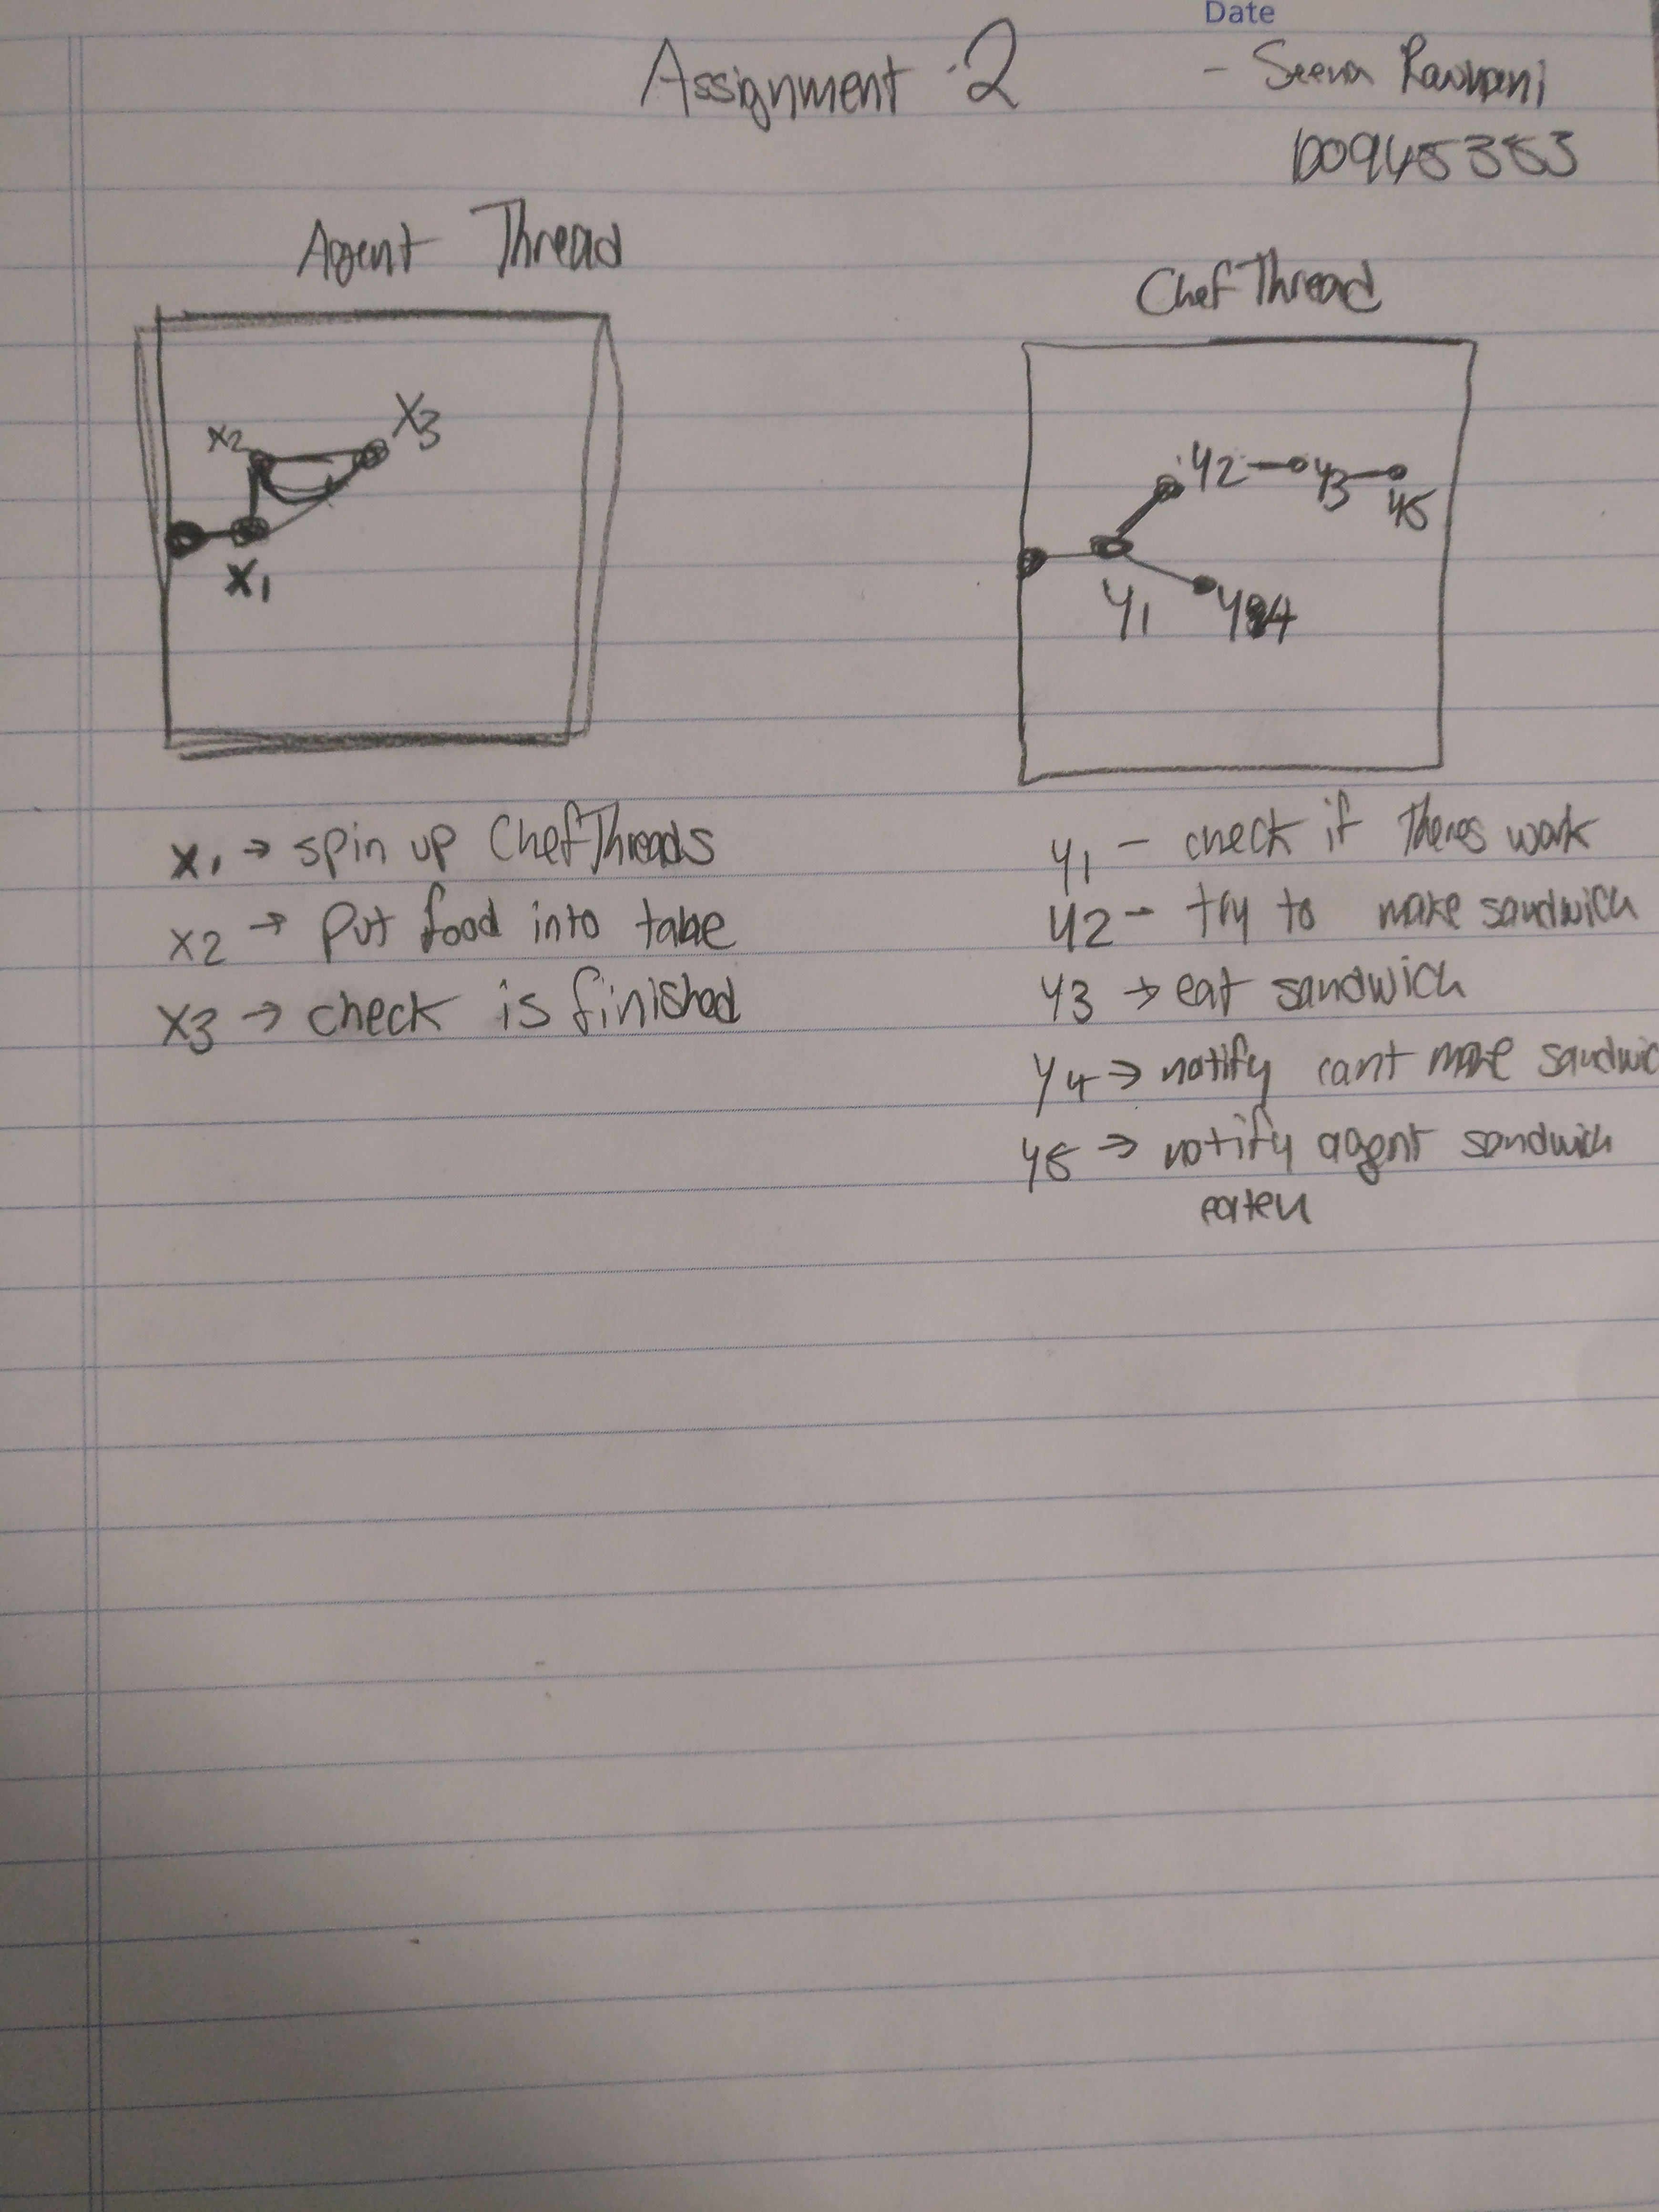 Date
Assignment 2
- Seena
Agent Thread
Chef Thread
x2
X3
x1
y2
y3
y5
y1
y4
x1 → spin up ChefThreads
x2 → put food into table
x3 → check is finished
y1 - check if theres work
y2 - try to make sandwich
y3 → eat sandwich
y4 → notify cant make sandwic
y5 → notify agent sandwich
eaten